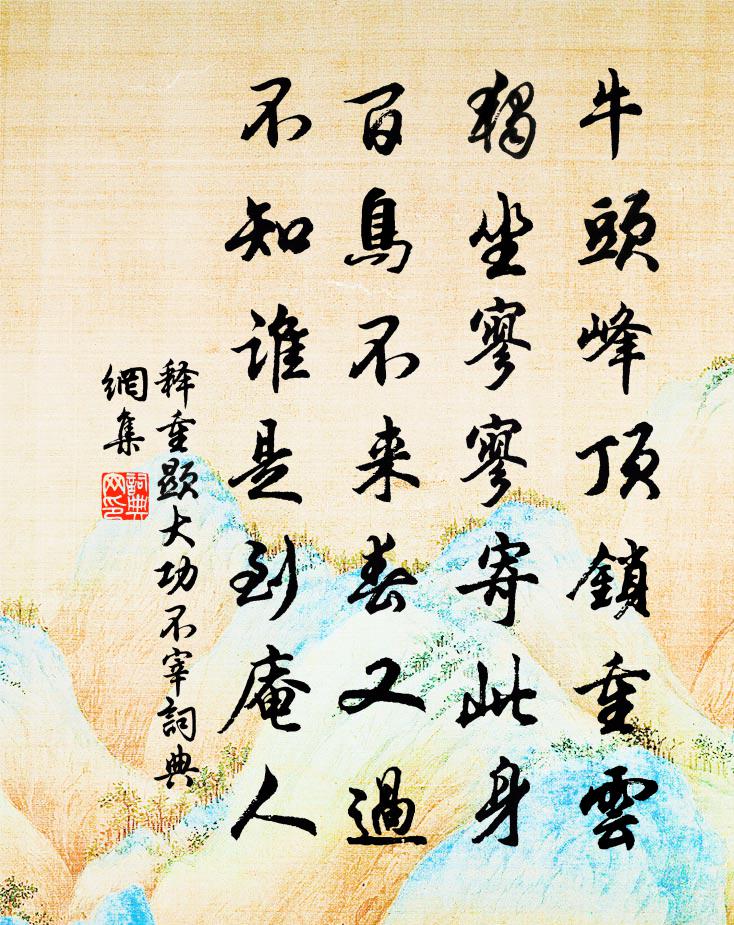 牛頭峰頂鎖重雲
獨坐寥寥寄此身
百鳥不来春又過
不知誰是到庵人
释重顯大功不宰詞典
網集
詞典網印